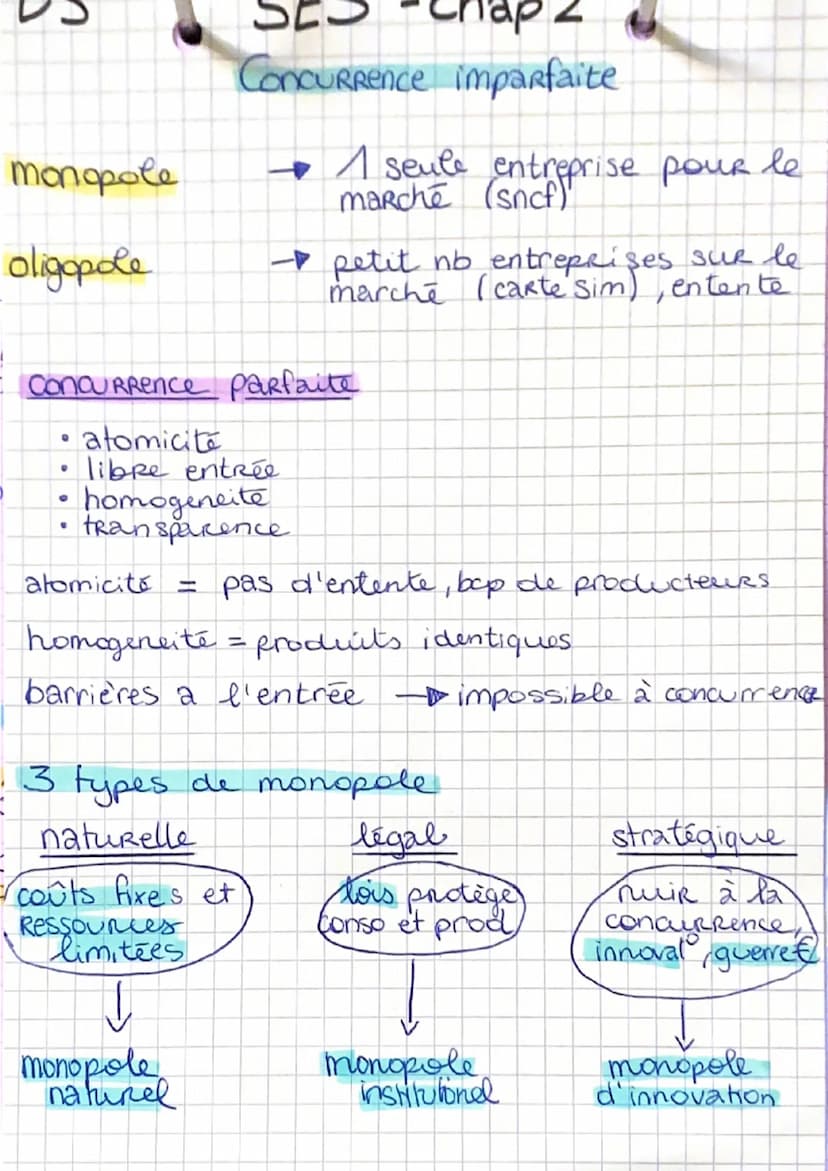 DS SES - Chap 2
Concurrence imparfaite
monopole → 1 seule entreprise pour le
marché (sncf)
oligopole → petit nb entreprises sur le
marché (carte sim), entente
concurrence parfaite
• atomicité
• libre entrée
• homogeneité
• transparence
atomicité = pas d'entente, bcp de producteurs
homogeneité = produits identiques
barrières a l'entrée → impossible à concurrence
3 types de monopole
naturelle légal stratégique
coûts fixes et lois protège nuir à la
ressources conso et prod concurrence,
limitées innovat°, guerre €
monopole monopole monopole
naturel institutionel d'innovation